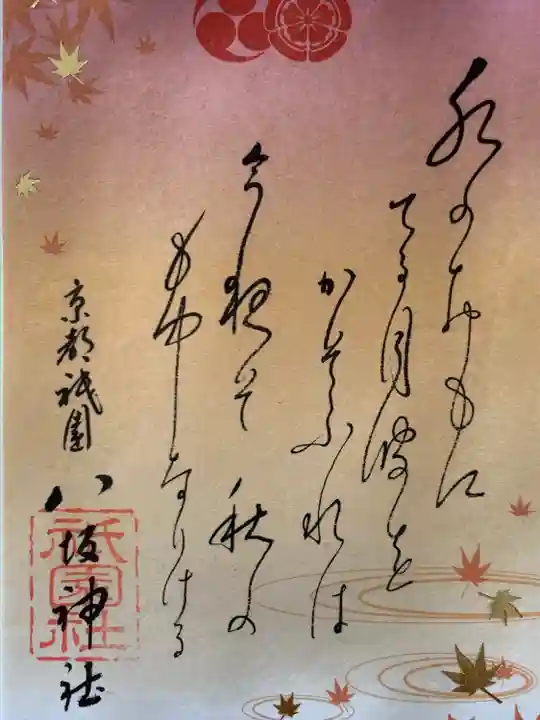 水のおもに
てる月波を
かそふれは
今夜そ 秋の
も中なりける
京都祇園
八坂神社
祇園社